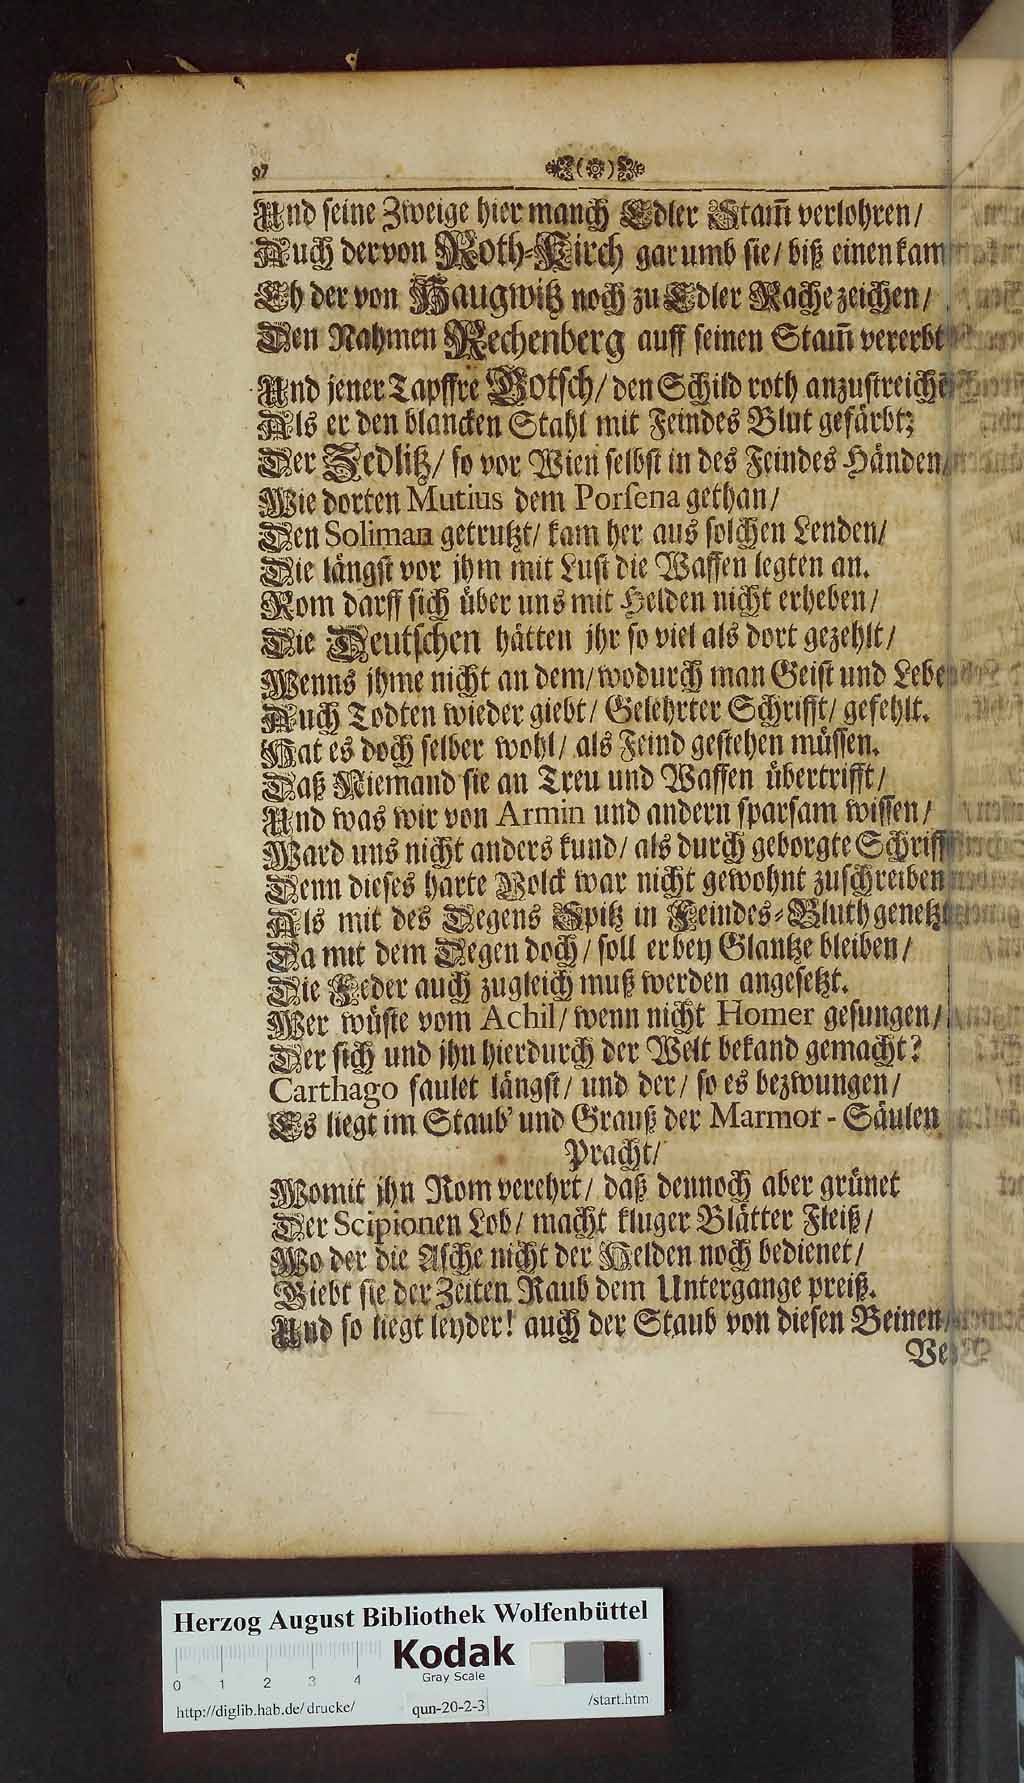 97
Und seine Zweige hier manch Edler Stam̃ verlohren/
Auch der von Roth-Kirch gar umb sie/ biß einen kam
Eh der von Haugwitz noch zu Edler Rache zeichen/
Den Nahmen Rechenberg auff seinen Stam̃ vererbt
Und jener Tapffre Botsch/ den Schild roth anzustreiche
Als er den blancken Stahl mit Feindes Blut gefärbt;
Der Zedlitz/ so vor Wien selbst in des Feindes Händen/
Wie dorten Mutius dem Porsena gethan/
Den Soliman getrutzt/ kam her aus solchen Lenden/
Die längst vor jhm mit Lust die Waffen legten an.
Rom darff sich über uns mit Helden nicht erheben/
Die Deutschen hätten jhr so viel als dort gezehlt/
Wenns jhme nicht an dem/ wodurch man Geist und Lebe
Auch Todten wieder giebt/ Gelehrter Schrifft/ gefehlt.
Hat es doch selber wohl/ als Feind gestehen müssen.
Daß Niemand sie an Treu und Waffen übertrifft/
Und was wir von Armin und andern sparsam wissen/
Ward uns nicht anders kund/ als durch geborgte Schriff
Denn dieses harte Volck war nicht gewohnt zuschreiben
Als mit des Degens Spitz in Feindes-Bluth genetzt
Da mit dem Degen doch/ soll er bey Glantze bleiben/
Die Feder auch zugleich muß werden angesetzt.
Wer wüste vom Achil/ wenn nicht Homer gesungen/
Der sich und ihn hierdurch der Welt bekand gemacht?
Carthago faulet längst/ und der/ so es bezwungen/
Es liegt im Staub' und Grauß der Marmor-Säulen
Pracht/
Womit jhn Rom verehrt/ daß dennoch aber grünet
Der Scipionen Lob/ macht kluger Blätter Fleiß/
Wo der die Asche nicht der Helden noch bedienet/
Giebt sie der Zeiten Raub dem Untergange preiß.
Und so liegt leyder! auch der Staub von diesen Beinen/
Ve
Herzog August Bibliothek Wolfenbüttel
Kodak
Gray Scale
0 1 2 3 4
http://diglib.hab.de/drucke/ qun-20-2-3 /start.htm